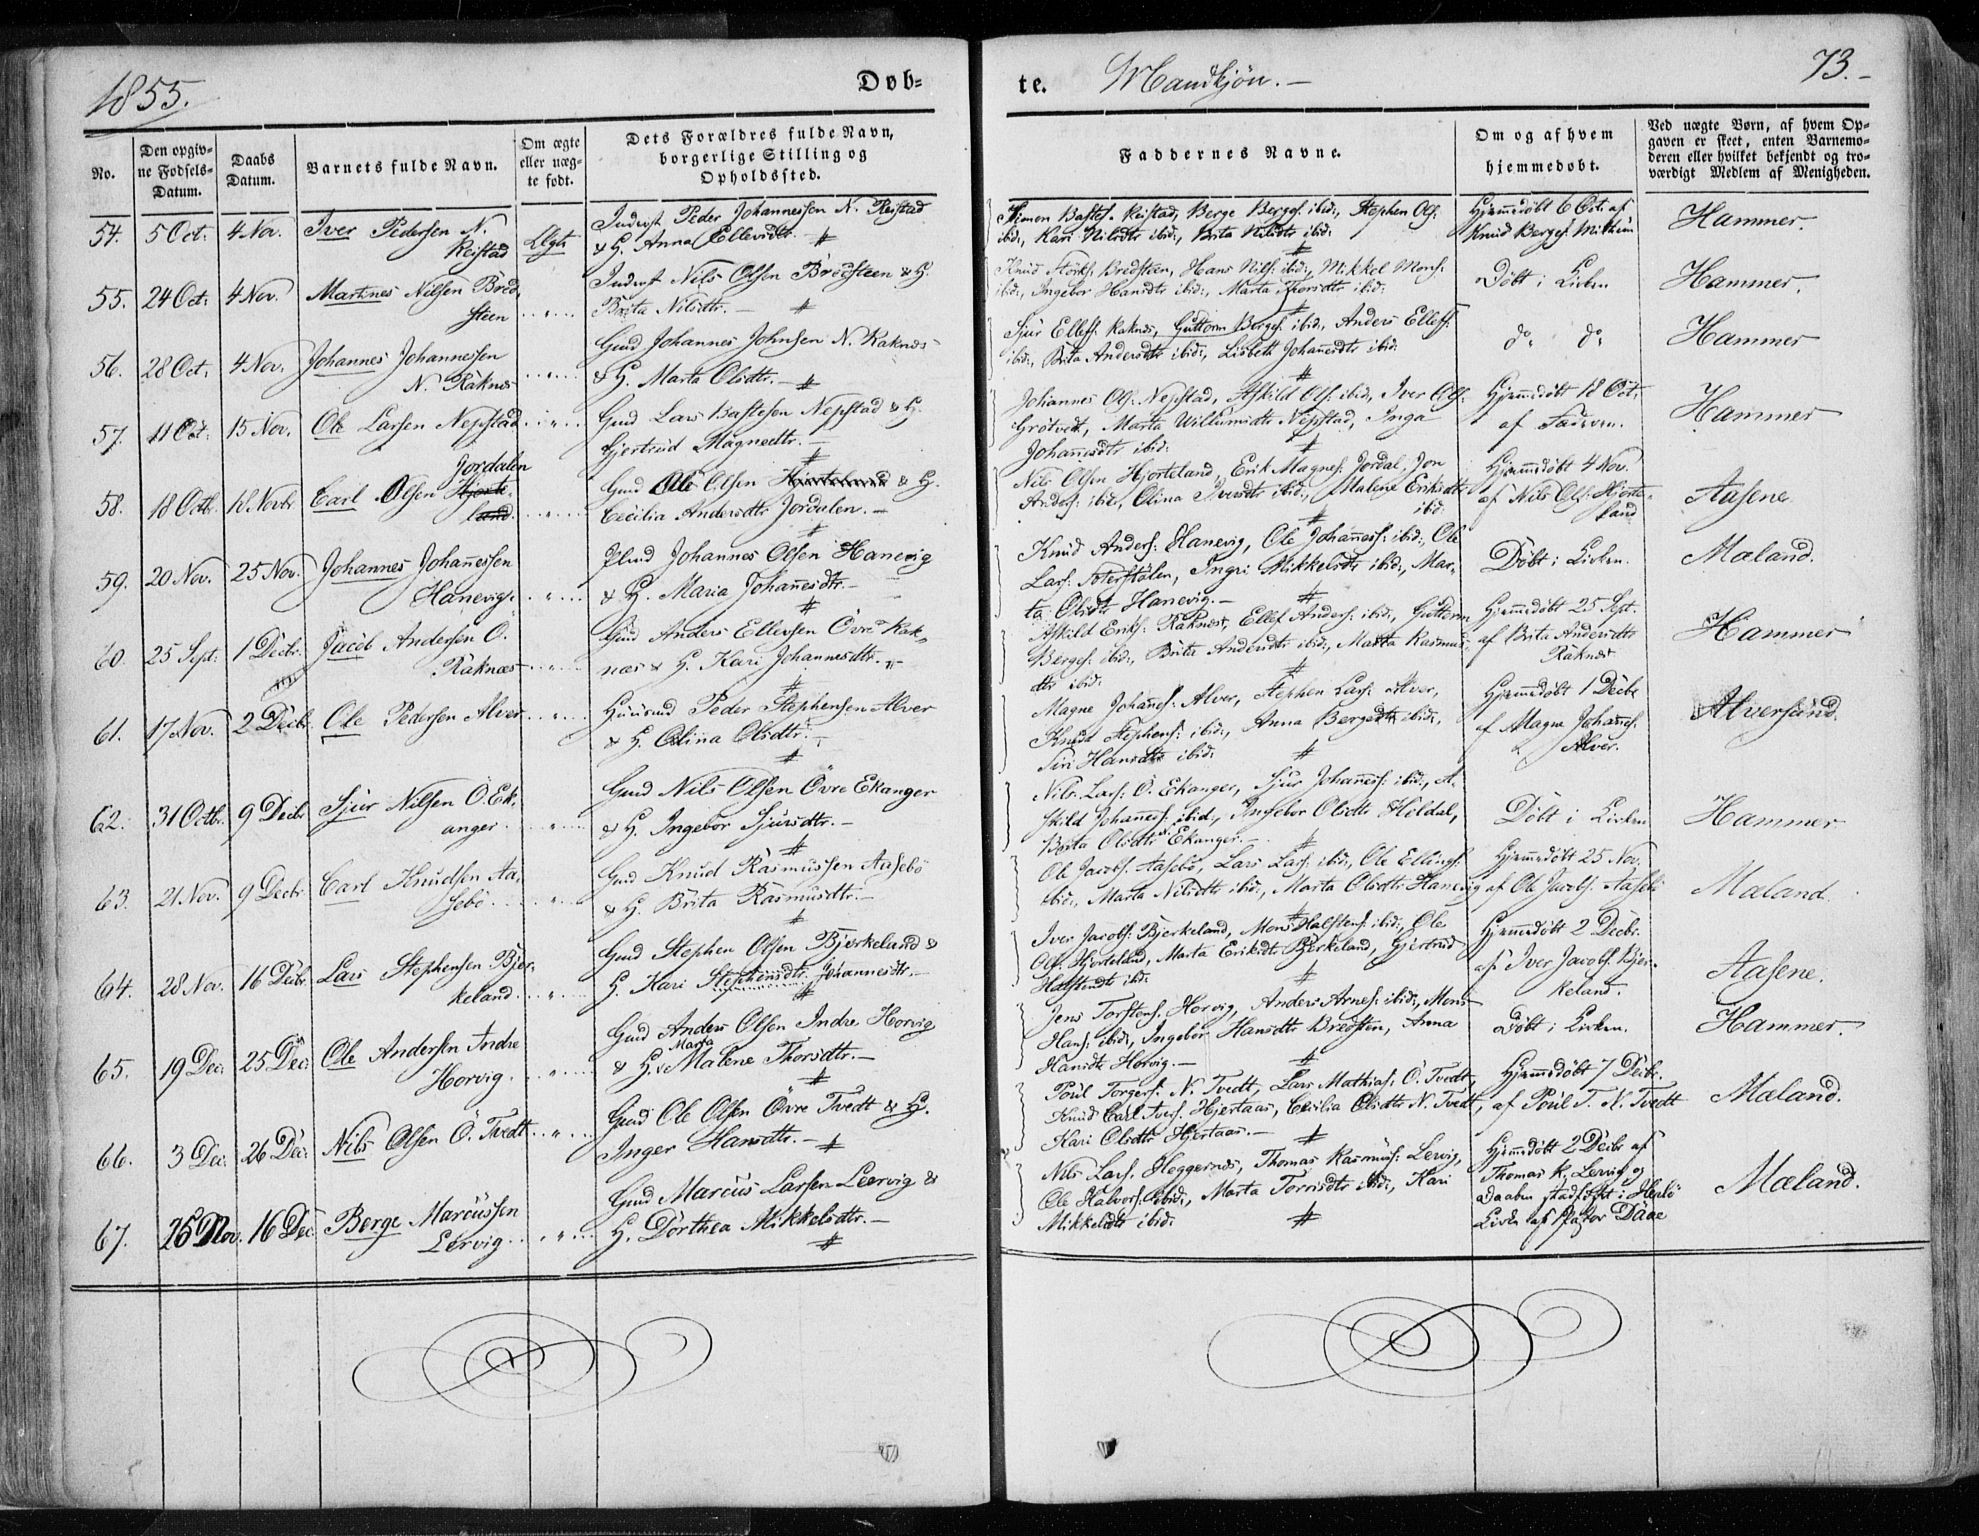 1855.
Døb=
te. Mandkjön. –
73. –
No.
Den opgiv=
ne Fødsels=
Datum.
Daabs
Datum.
Barnets fulde Navn.
Om ægte
eller uæg=
te født.
Dets Forældres fulde Navn,
borgerlige Stilling og
Opholdssted.
Faddernes Navne.
Om og af hvem
hjemmedøbt.
Ved uægte Børn, af hvem Op=
gaven er skeet, enten Barnemo=
deren eller hvilket bekjendt og tro=
værdigt Medlem af Menigheden.
54. 5 Oct. 4 Nov. Iver Pedersen N.
Reistad
Peder Johannessen N. Reistad
& H. Anna Ellevsdtr. –
Simon Bastes. Reistad, Berge Berges. ibid:, Stephen Ols:
ibid:, Kari Nilsdtr ibid:, Brita Nilsdtr ibid:
Hjemmedöbt 6 Oct. af
Knud Berges.
Hammer.
55. 24 Oct. 4 Nov. Martines Nilsen Bred,
steen
Nils Olsen Bredsteen & H.
Brita Nilsdtr. –
Knud Bredsteen, Hans Nils. ibid:, Mikkel Mons.
ibid:, Ingebor Hansdtr ibid:, Marta Thorsdtr ibid:
Döbt i Kirken
Hammer.
56. 28 Oct. 4 Nov. Johannes Johannessen
N. Raknes
Gmd Johannes Johnsen N. Raknes
& H. Marta Olsdtr. –
Sjur Ellefs. Raknes, Guttorm Berges. ibid:, Anders Ellefs.
ibid:, Brita Andersdtr ibid:, Lisbeth Johannesdtr ibid:
do do
Hammer
57. 11 Oct. 15 Nov. Ole Larsen Nepstad
Gmd Lars Bastesen Nepstad & H.
Gjertrud Magnedtr. –
Johannes Ols. Nepstad, Askild Ols. ibid:, Iver Ols:
Grötvedt, Marta Willumsdtr Nepstad, Inga
Johannesdtr ibid:
Hjemmedöbt 18 Oct.
af Faderen.
Hammer
58. 18 Octb. 18 Novbr Carl Olsen Hjorte-
land. Jordalen
Gmd Ole Olsen Hjorteland & H.
Cecilia Andersdtr Jordalen. –
Nils Olsen Hjorteland, Erik Magnes. Jordal, Jon
Anders. ibid:, Olina Iversdtr ibid:, Malene Eriksdtr
ibid:
Hjemmedöbt 4 Nov.
af Nils Ols. Hjorte-
land
Aasene
59. 20 Nov. 25 Nov. Johannes Johannessen
Hanevig.
Johannes Olsen Hanevig
& H. Maria Johannesdtr. –
Knud Anders. Hanevig, Ole Johannes. ibid:, Ole
Lars. Ingri Mikkelsdtr ibid:, Mar-
ta Olsdtr Hanevig. –
Döbt i Kirken.
Mæland.
60. 25 Sept. 1 Decbr. Jacob Andersen Ö.
Raknæs
Gmd Anders Ellevsen Övre Rak-
næs & H. Kari Johannesdtr. –
Askild Eriks. Raknes, Ellef Anders. ibid:, Guttorm
Berges. ibid:, Brita Andersdtr ibid:, Marta Rasmus-
dtr ibid:
Hjemmedöbt 25 Sept.
af Brita Andersdtr
Raknes
Hammer
61. 17 Nov. 2 Decbr. Ole Pedersen Alver
Huusmd Peder Stephensen Alver
& H. Olina Olsdtr. –
Magne Johannes. Alver, Stephen Lars. Alver,
Knud Stephens. ibid:, Anna Bergesdtr ibid:,
Siri Hansdtr ibid:
Hjemmedöbt 1 Decbr
af Magne Johannes.
Alver.
Alversund.
62. 31 Octb. 9 Decbr Sjur Nilsen Ö. Ek-
anger.
Gmd Nils Olsen Övre Ekanger
& H. Ingebor Sjursdtr. –
Nils Lars. Ö. Ekanger, Sjur Johannes. ibid:, A-
skild Johannes. ibid:, Ingebor Olsdtr Hildal,
Brita Olsdtr Ekanger. –
Döbt i Kirken
Hammer.
63. 21 Nov. 9 Decbr. Carl Knudsen Aa-
sebö.
Gmd Knud Rasmussen Aasebö
& H. Brita Rasmusdtr. –
Ole Jacobs. Aasebö, Lars Lars. ibid:, Ole Ellings.
ibid:, Marta Nilsdtr ibid:, Marta Olsdtr Hanevig
Hjemmedöbt 25 Nov.
af Ole Jacobs. Aasebö
Mæland.
64. 28 Nov. 16 Decbr. Lars Stephensen Bjer-
keland.
Gmd Stephen Olsen Bjerkeland &
H. Kari Stephensdtr. Johannesdtr. –
Iver Jacobs. Bjerkeland, Mons Halstens. ibid:, Ole
Ols. Hjorteland, Marta Eriksdtr Bjerkeland, Gjertrud
Halstendtr ibid:
Hjemmedöbt 2 Decbr.
af Iver Jacobs. Bjer-
keland.
Aasene.
65. 19 Dec. 25 Dec. Ole Andersen Indre
Horvig.
Gmd Anders Olsen Indre Horvig
& H. Marta Malene Thorsdtr. –
Jens Torstens. Horvig, Anders Arnes. ibid:, Mons
Hans. ibid:, Ingebor Hansdtr Bredsten, Anna
Hansdtr Horvig. –
Döbt i Kirken.
Hammer.
66. 3 Dec. 26 Dec. Nils Olsen Ö. Tvedt
Gmd Ole Olsen Övre Tvedt & H.
Inger Hansdtr. –
Poul Torgers. N. Tvedt, Lars Mathias. Ö. Tvedt,
Knud Carl Ivers. Hjertaas, Cecilia Olsdtr N. Tvedt,
Kari Olsdtr Hjertaas. –
Hjemmedöbt 7 Decbr.
af Poul T. N. Tvedt
Mæland.
67. 25 Nov. 16 Dec. Berge Marcussen
Lervig
Gmd Marcus Larsen Leervig &
H. Dorthea Mikkelsdtr. –
Nils Lars. Heggernes, Thomas Rasmus. Lervig,
Ole Halvors. ibid:, Marta Torrisdtr ibid:, Kari
Mikkelsdtr ibid:
Hjemmedöbt 2 Decbr af
Thomas R. Lervig og
Daaben stadfæst i Herlö
Kirke af Pastor Daae
Mæland.